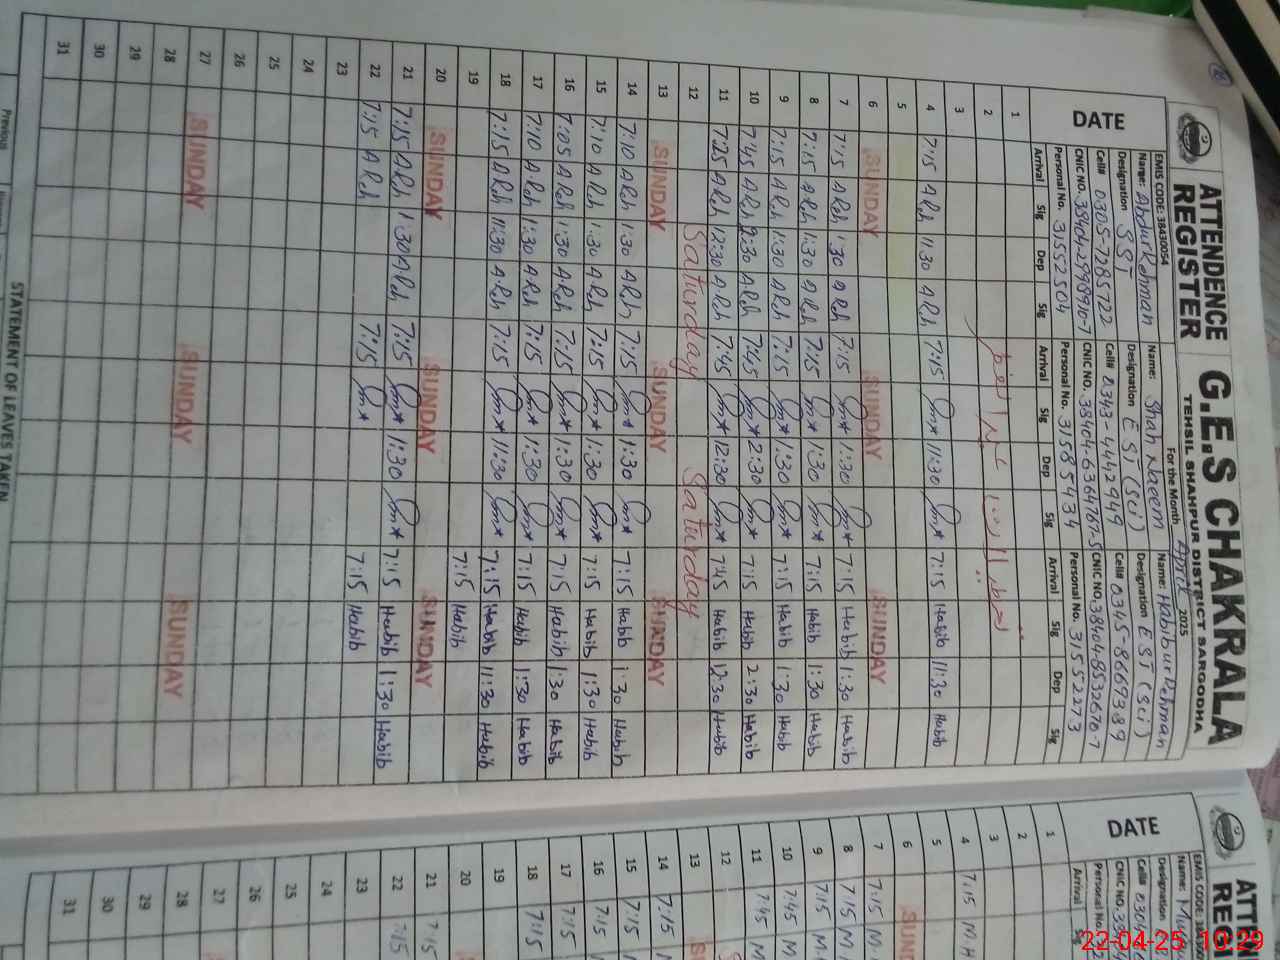 ATTENDENCE REGISTER
G.E.S CHAKRALA
TEHSIL SHAHPUR DISTRICT SARGODHA
For the Month April 2025
EMIS CODE: 38430054
DATE
Name: Abdur Rehman
Designation SST
Cell# 0305-7285722
CNIC NO. 38404-2998910-7
Personal No. 31552504
Arrival Sig Dep Sig
Name: Shah Naeem
Designation EST (sci)
Cell# 0343-4442949
CNIC NO. 38404-6364767-5
Personal No. 31585434
Arrival Sig Dep Sig
Name: Habib ur Rehman
Designation EST (sci)
Cell# 0345-8669389
CNIC NO. 38404-8532670-7
Personal No. 31552273
Arrival Sig Dep Sig
1
2
3
4 7:15 ARh 11:30 ARh 7:15 11:30 7:15 Habib 11:30 Habib
5
6 SUNDAY SUNDAY SUNDAY
7 7:15 ARh 1:30 ARh 7:15 1:30 7:15 Habib 1:30 Habib
8 7:15 ARh 1:30 ARh 7:15 1:30 7:15 Habib 1:30 Habib
9 7:15 ARh 1:30 ARh 7:15 1:30 7:15 Habib 1:30 Habib
10 7:45 ARh 2:30 ARh 7:45 2:30 7:15 Habib 2:30 Habib
11 7:25 ARh 12:30 ARh 7:45 12:30 7:45 Habib 12:30 Habib
12 Saturday Saturday
13 SUNDAY SUNDAY SUNDAY
14 7:10 ARh 1:30 ARh 7:15 1:30 7:15 Habib 1:30 Habib
15 7:10 ARh 1:30 ARh 7:15 1:30 7:15 Habib 1:30 Habib
16 7:05 ARh 1:30 ARh 7:15 1:30 7:15 Habib 1:30 Habib
17 7:10 ARh 1:30 ARh 7:15 1:30 7:15 Habib 1:30 Habib
18 7:15 ARh 11:30 ARh 7:15 11:30 7:15 Habib 11:30 Habib
19 7:15 Habib
20 SUNDAY SUNDAY SUNDAY
21 7:15 ARh 1:30 ARh 7:15 1:30 7:15 Habib 1:30 Habib
22 7:15 ARh 7:15 7:15 Habib
23
24
25
26
27 SUNDAY SUNDAY SUNDAY
28
29
30
31
STATEMENT OF LEAVES TAKEN
Previous
DATE
Arrival
1
2
3
4 7:15 M.H
5
6 SUND
7 7:15 M.
8 7:15 M
9 7:15 M.
10 7:45 M
11 7:45 M
12
13
14 7:15
15 7:15
16 7:15
17 7:15
18 7:15
19
20
21 7:15
22 7:15
23
24
25
26
27
28
29
30
31
22-04-25 10:29